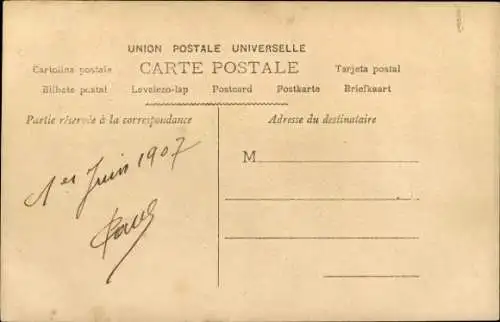 UNION POSTALE UNIVERSELLE
Cartolina postale CARTE POSTALE Tarjeta postal
Bilhete postal Levelezo-lap Postcard Postkarte Briefkaart
Partie réservée à la correspondance
Adresse du destinataire
M
1er Juin 1907
Paul